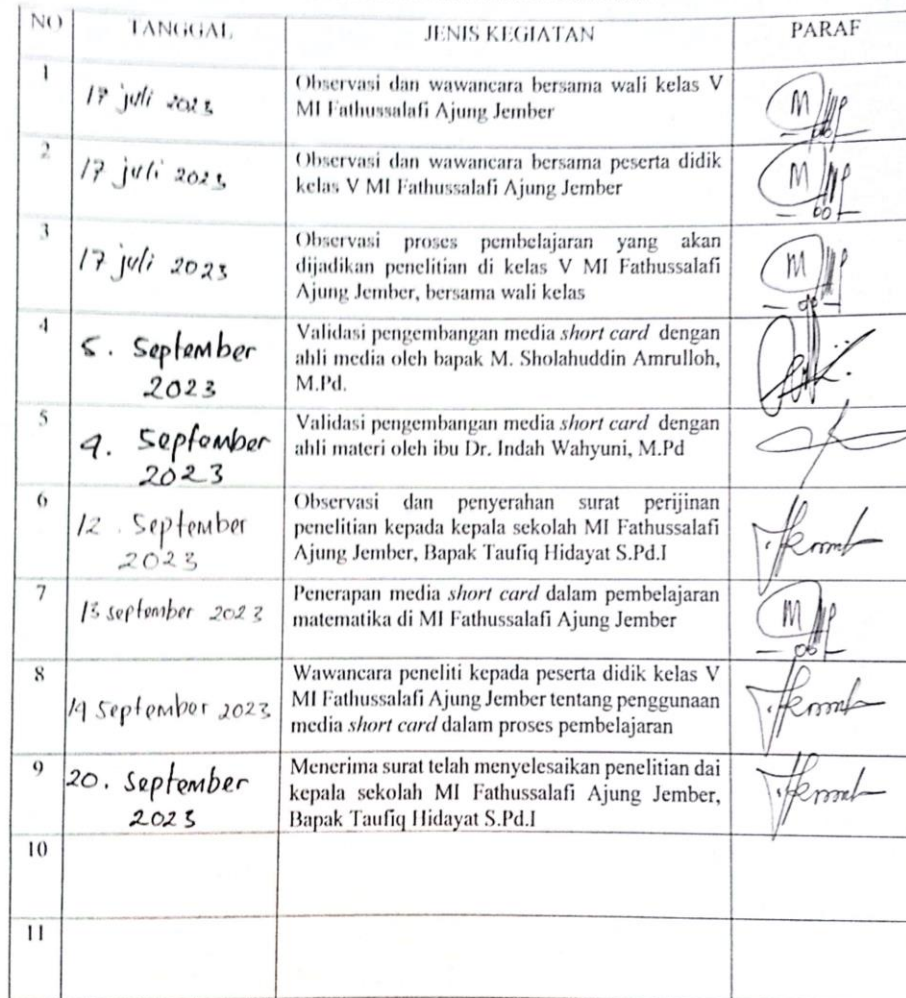 NO TANGGAL JENIS KEGIATAN PARAF
1 17 juli 2023 Observasi dan wawancara bersama wali kelas V
MI Fathussalafi Ajung Jember
2 17 juli 2023 Observasi dan wawancara bersama peserta didik
kelas V MI Fathussalafi Ajung Jember
3 17 juli 2023 Observasi proses pembelajaran yang akan
dijadikan penelitian di kelas V MI Fathussalafi
Ajung Jember, bersama wali kelas
4 5. September Validasi pengembangan media short card dengan
2023 ahli media oleh bapak M. Sholahuddin Amrulloh,
M.Pd.
5 September Validasi pengembangan media short card dengan
2023 ahli materi oleh ibu Dr. Indah Wahyuni, M.Pd
6 12. September Observasi dan penyerahan surat perijinan
2023 penelitian kepada kepala sekolah MI Fathussalafi
Ajung Jember, Bapak Taufiq Hidayat S.Pd.I
7 13 september 2023 Penerapan media short card dalam pembelajaran
matematika di MI Fathussalafi Ajung Jember
8 September 2023 Wawancara peneliti kepada peserta didik kelas V
MI Fathussalafi Ajung Jember tentang penggunaan
media short card dalam proses pembelajaran
9 20. September Menerima surat telah menyelesaikan penelitian dai
2023 kepala sekolah MI Fathussalafi Ajung Jember,
Bapak Taufiq Hidayat S.Pd.I
10
11